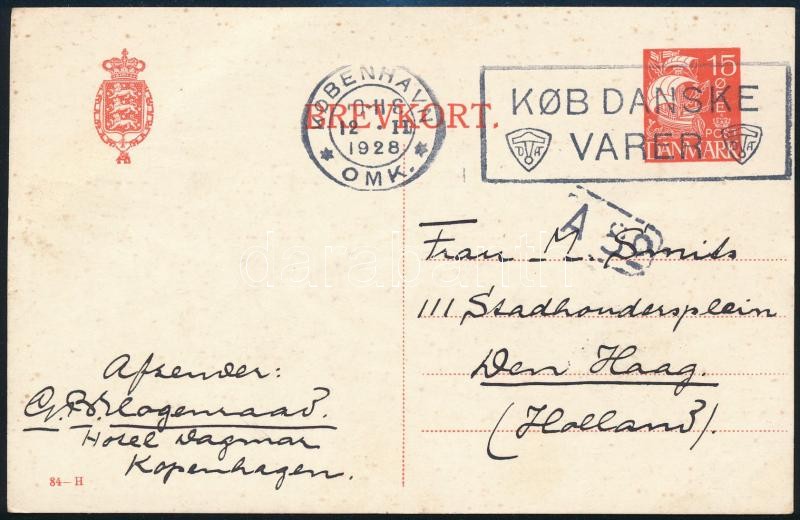 KØBENHAVN
12 - II
1928
OMK.
BREVKORT.
15
ØRE
POST
DANMARK
KØB DANSKE
VARER
DTA
A
Frau M. Smits
111 Stadhoudersplein
Den Haag.
(Holland).
Afsender:
Hotel Dagmar
Kopenhagen.
84—H
darabanth